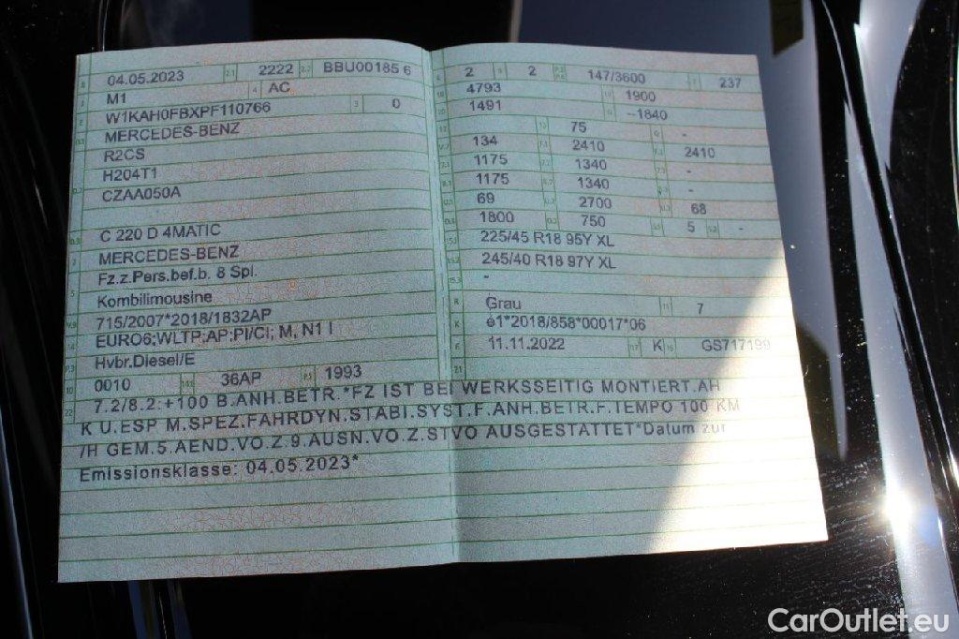 04.05.2023 2222 BBU00185 6
M1 AC
W1KAH0FBXPF110766 0
MERCEDES-BENZ
R2CS
H204T1
CZAA050A
C 220 D 4MATIC
MERCEDES-BENZ
Fz.z.Pers.bef.b. 8 Spl.
Kombilimousine
715/2007*2018/1832AP
EURO6;WLTP;AP;PI/CI; M, N1 I
Hybr.Diesel/E
0010 36AP 1993
2 2 147/3600 237
4793 1900
1491 –1840
75 -
134 2410 2410
1175 1340 -
1175 1340 -
69 2700 68
1800 750 5 -
225/45 R18 95Y XL
245/40 R18 97Y XL
-
Grau 7
e1*2018/858*00017*06
11.11.2022 K GS717199
7.2/8.2:+100 B.ANH.BETR.*FZ IST BEI WERKSSEITIG MONTIERT.AH
K U.ESP M.SPEZ.FAHRDYN.STABI.SYST.F.ANH.BETR.F.TEMPO 100 KM
/H GEM.5.AEND.VO.Z.9.AUSN.VO.Z.STVO AUSGESTATTET*Datum zur
Emissionsklasse: 04.05.2023*
CarOutlet.eu